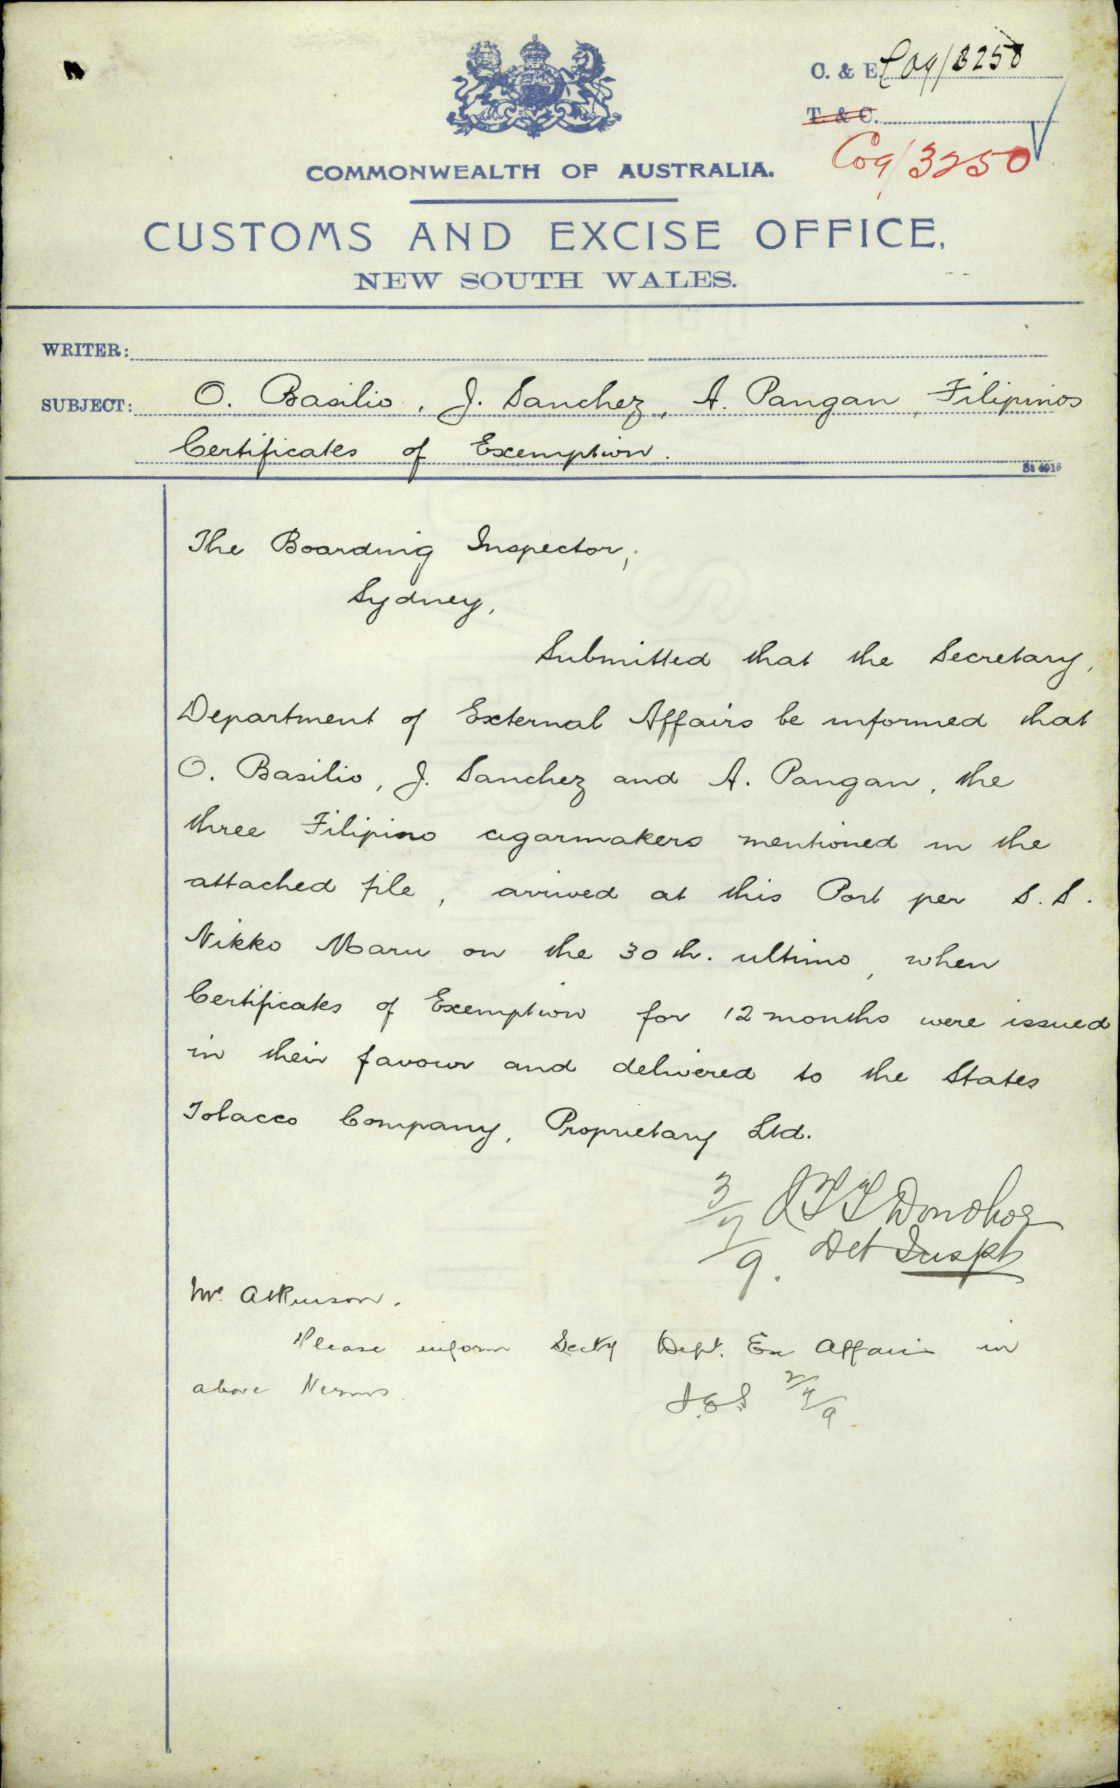 C. & E. C09/3250
T. & C.
C09/3250
COMMONWEALTH OF AUSTRALIA.
CUSTOMS AND EXCISE OFFICE,
NEW SOUTH WALES.
WRITER:
SUBJECT: O. Basilio, J. Sanchez, A. Pangan, Filipinos
Certificates of Exemption.
St 4016
The Boarding Inspector,
Sydney,
Submitted that the Secretary,
Department of External Affairs be informed that
O. Basilio, J. Sanchez and A. Pangan, the
three Filipino cigarmakers mentioned in the
attached file, arrived at this Port per S.S.
Nikko Maru on the 30th. ultimo, when
Certificates of Exemption for 12 months were issued
in their favour and delivered to the States
Tobacco Company, Proprietary Ltd.
3/7/9. Donohoe
Det Inspt
Mr. Atkinson.
Please inform Secty Dept. Ex Affairs in
above terms.
2/7/9